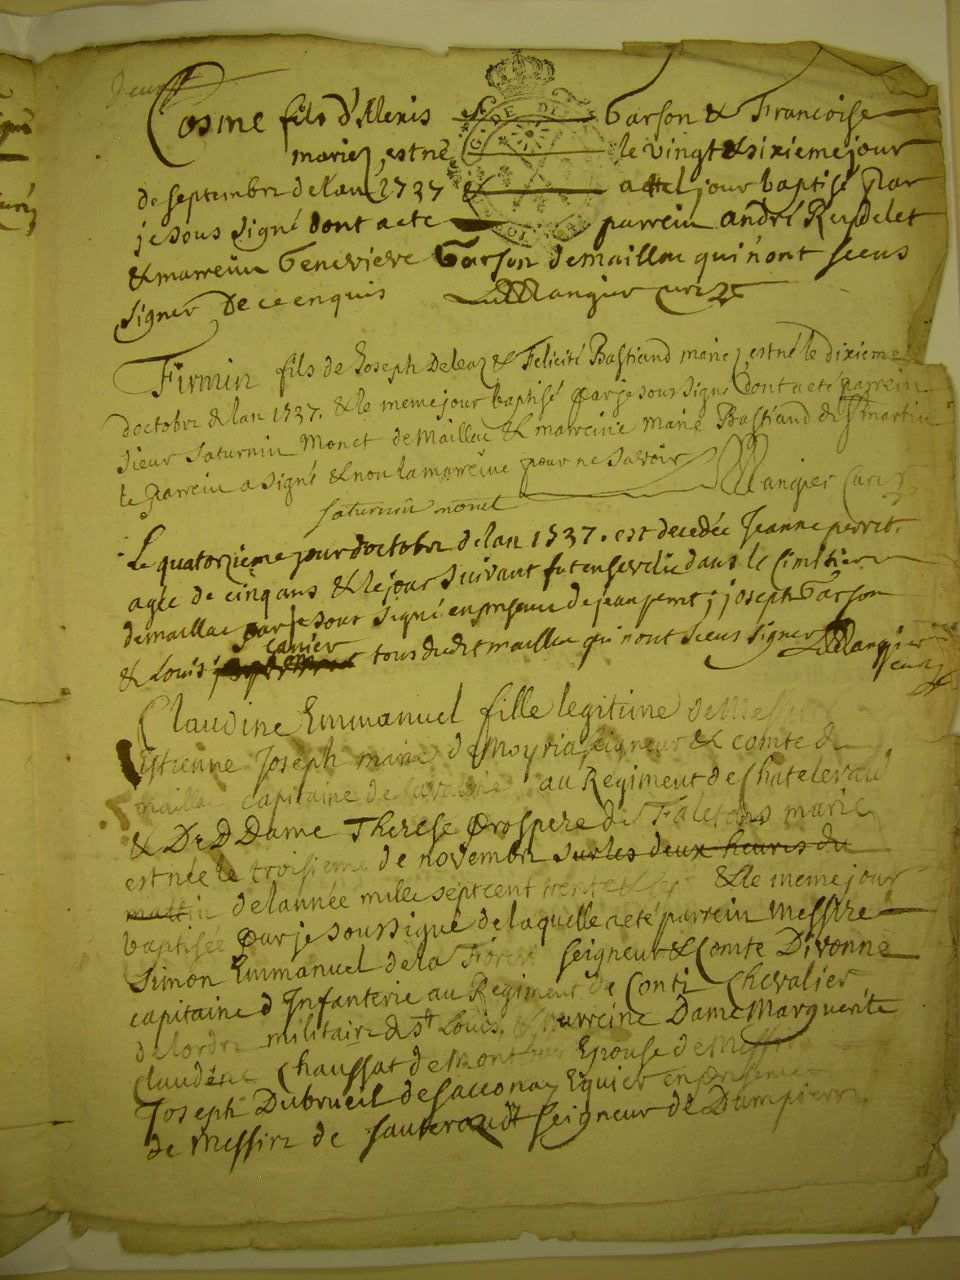 Cosme fils d'Alexis Garson & Francoise
mariez, est né le vingt & sixieme jour
de septembre de lan 1737 & a ete baptisé par
je sous signé dont a ete parrein andré
& marreine Genevieve Garson de maillac qui n'ont sceus
signer De ce enquis Mangier curé
Firmin fils de Joseph Deleaz & Felicité Bastiand mariez, est né le dixieme
doctobre de lan 1737. & le meme jour baptisé par je sous signé dont a eté parrein
sieur Saturnin Monet de Maillac & marreine Marie Bastiand de St martin
le parrein a signé & non la marreine pour ne savoir Mangier Curé
saturnin monet
Le quatorzieme jour doctobre de lan 1737. est decedée Jeanne perret
agée de cinq ans & le jour suivant fut ensevelie dans le Cimitiere
de maillac par je sous signé en presence de jean perret ; joseph Garson
& Louis canier tous dudit maillac qui n'ont sceus signer Mangier
curé
Claudine Emmanuel fille legitime de Messire
Estienne Joseph marie de Moyria seigneur & comte de
maillac capitaine de cavalerie au Regiment de Chateleraud
& De D Dame Therese Prospere de Faletans marie
est née le troisieme de novembre sur les deux heures du
mattin de lannée mille sept cent trente & sept & le meme jour
baptisée par je soussigné de laquelle a eté parrein Messire
Simon Emmanuel de la Forest seigneur & Comte Divonne
capitaine d Infanterie au Regiment de Conti Chevalier
de lordre militaire de St Louis, & marreine Dame Marguerite
Claudine Chaussat de Mont Epouse de Messire
Joseph Dubrueil de Sacconay Equier en presence
de Messire de Sauterau seigneur de Dampierre